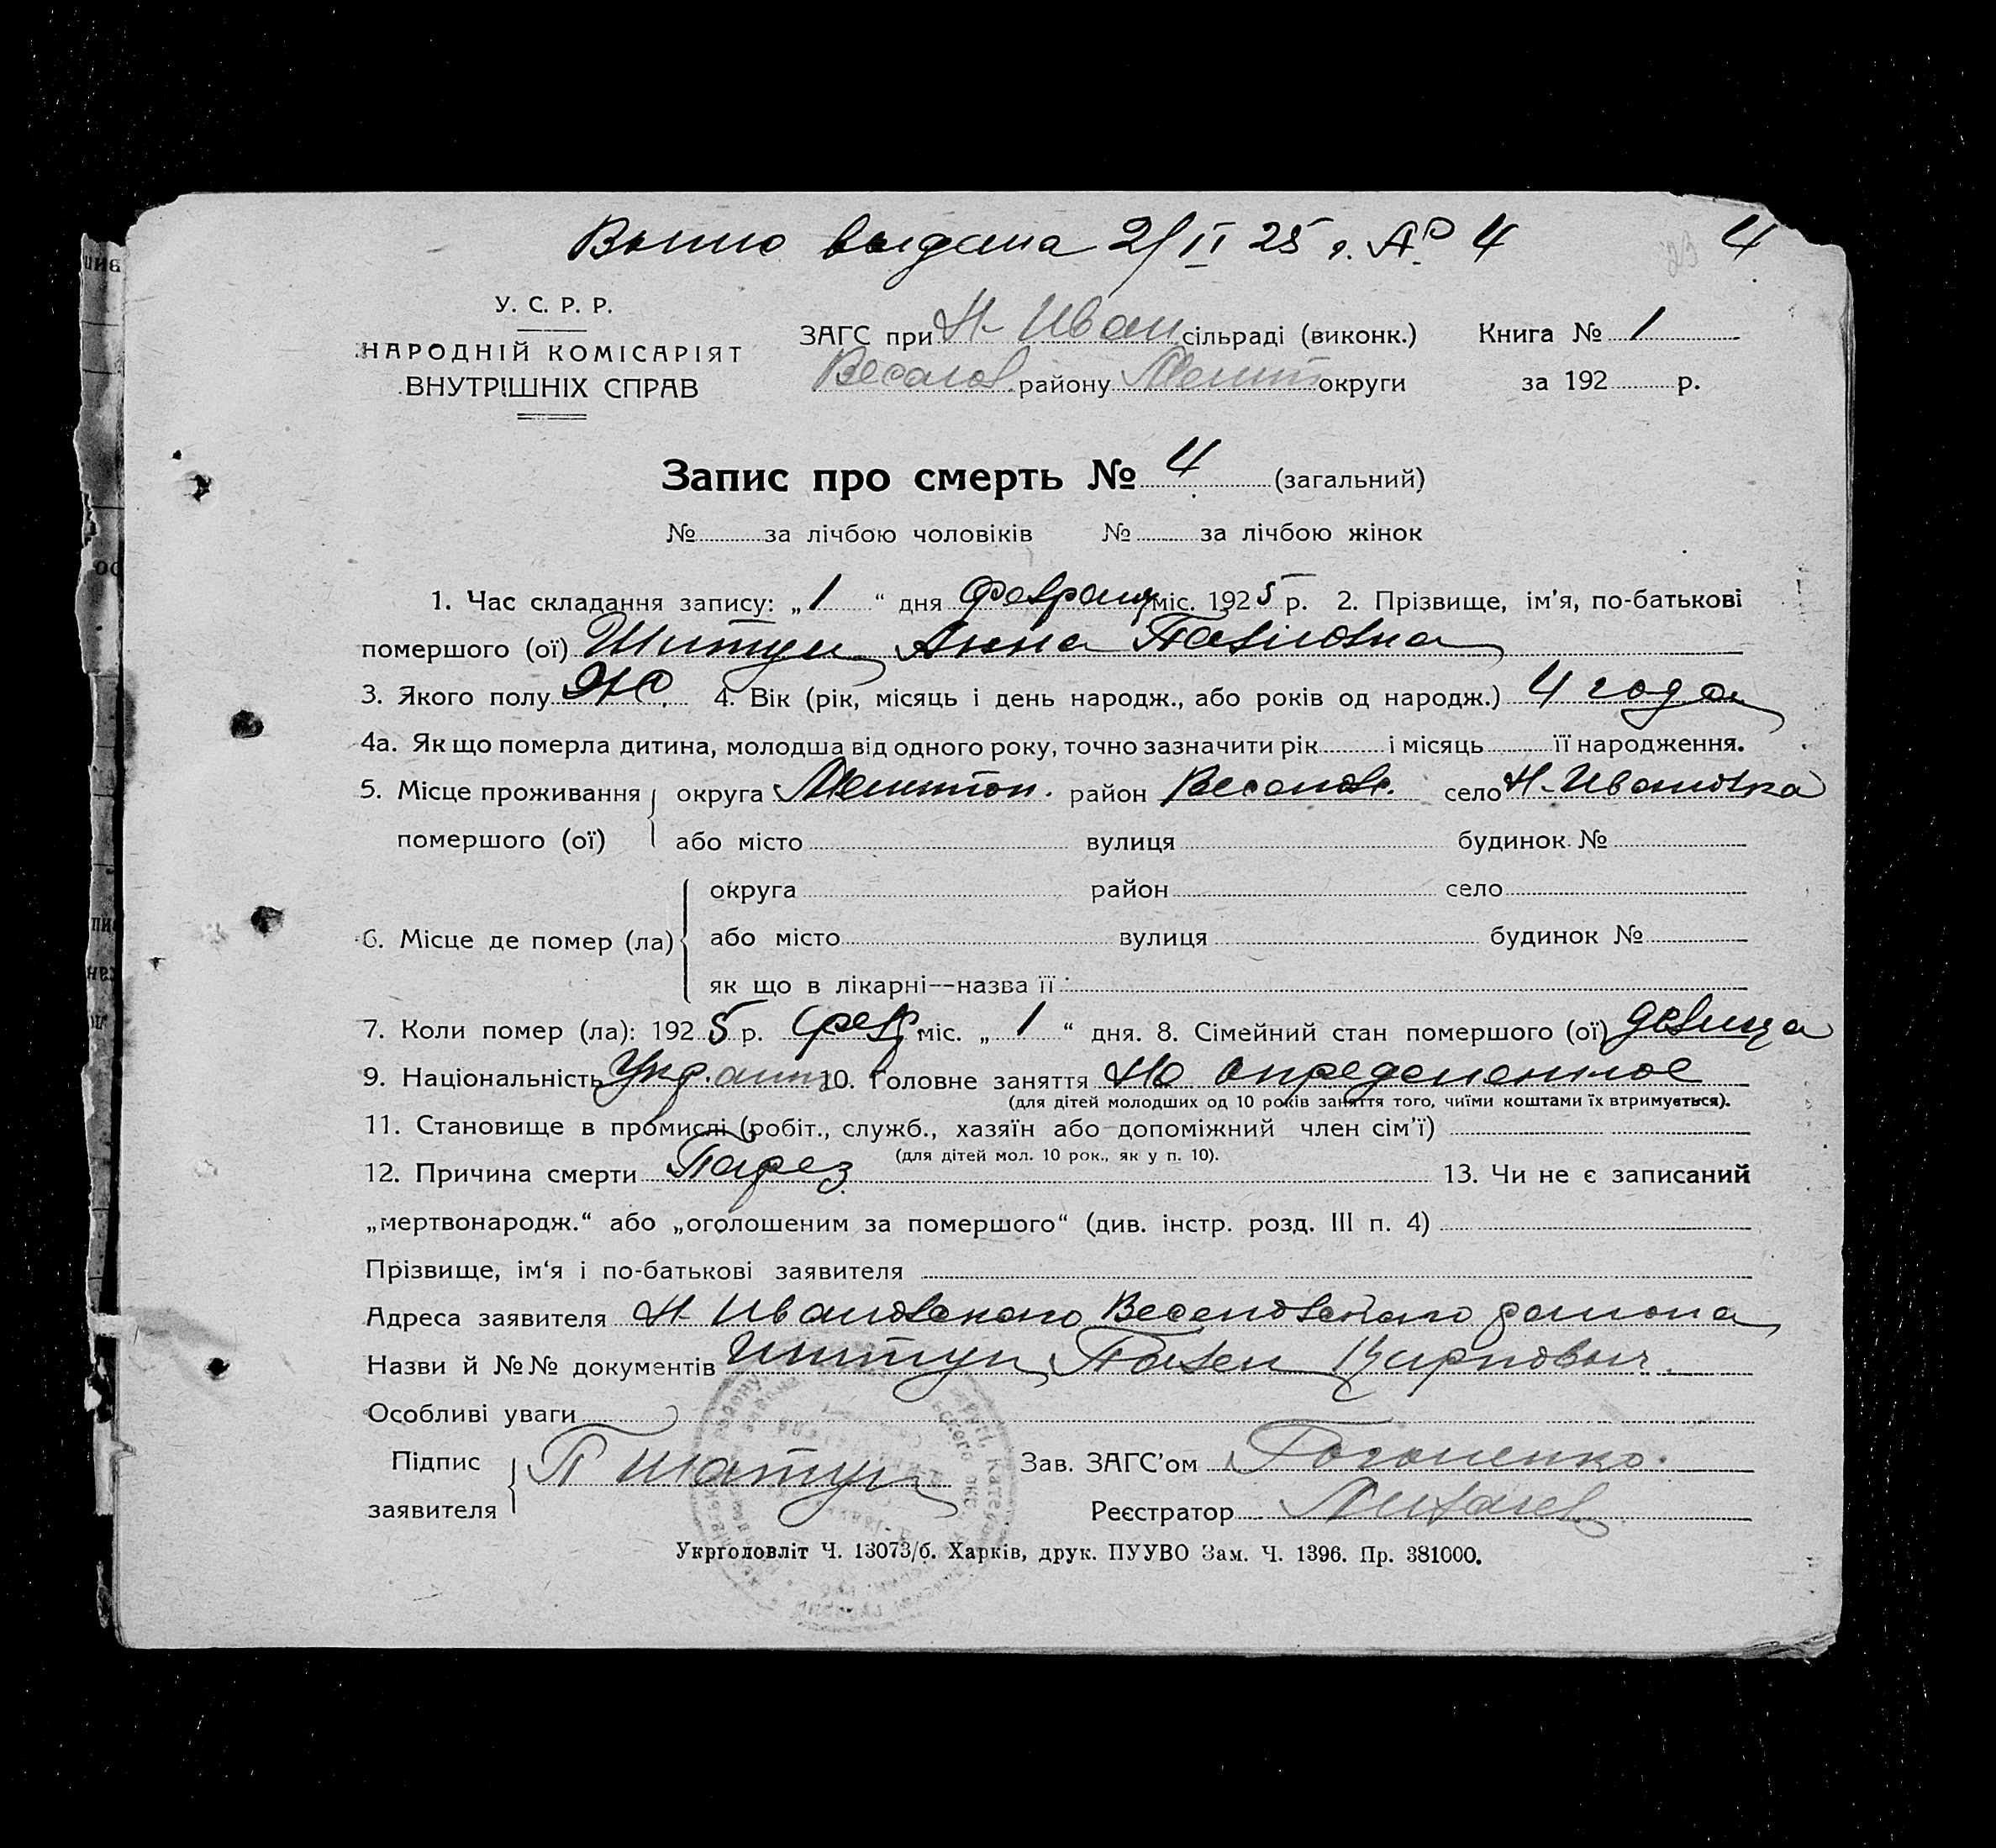 Выпис выдана 2/II 25 г. № 4 4
У. С. Р. Р.
НАРОДНІЙ КОМІСАРІЯТ
ВНУТРІШНІХ СПРАВ
ЗАГС при Н-Иван сільраді (виконк.) Книга № 1
Веселов району Мелит округи за 192 р.
Запис про смерть № 4 (загальний)
№ за лічбою чоловіків № за лічбою жінок
1. Час складання запису: „1“ дня февраля міс. 1925 р. 2. Прізвище, ім'я, по-батькові
помершого (ої) Шптун Анна Павловна
3. Якого полу Ж. 4. Вік (рік, місяць і день народж., або років од народж.) 4 года
4а. Як що померла дитина, молодша від одного року, точно зазначити рік і місяць її народження.
5. Місце проживання округа Мелитоп. район Веселов. село Н-Ивановка
помершого (ої) або місто вулиця будинок №
округа район село
6. Місце де помер (ла) або місто вулиця будинок №
як що в лікарні—назва її
7. Коли помер (ла): 1925 р. фев. міс. „1“ дня. 8. Сімейний стан помершого (ої) девица
9. Національність Укр. 10. Головне заняття Не определенное
(для дітей молодших од 10 років заняття того, чиїми коштами їх втримується).
11. Становище в промислі (робіт., служб., хазяїн або допоміжний член сім'ї)
(для дітей мол. 10 рок., як у п. 10).
12. Причина смерти 13. Чи не є записаний
„мертвонародж.“ або „оголошеним за помершого“ (див. інстр. розд. III п. 4)
Прізвище, ім'я і по-батькові заявителя
Адреса заявителя Н-Ивановского Веселовского района
Назви й №№ документів Павел Карпович.
Особливі уваги
Підпис П Зав. ЗАГС'ом
заявителя Реєстратор
Укрголовліт Ч. 13073/б. Харків, друк. ПУУВО Зам. Ч. 1396. Пр. 381000.